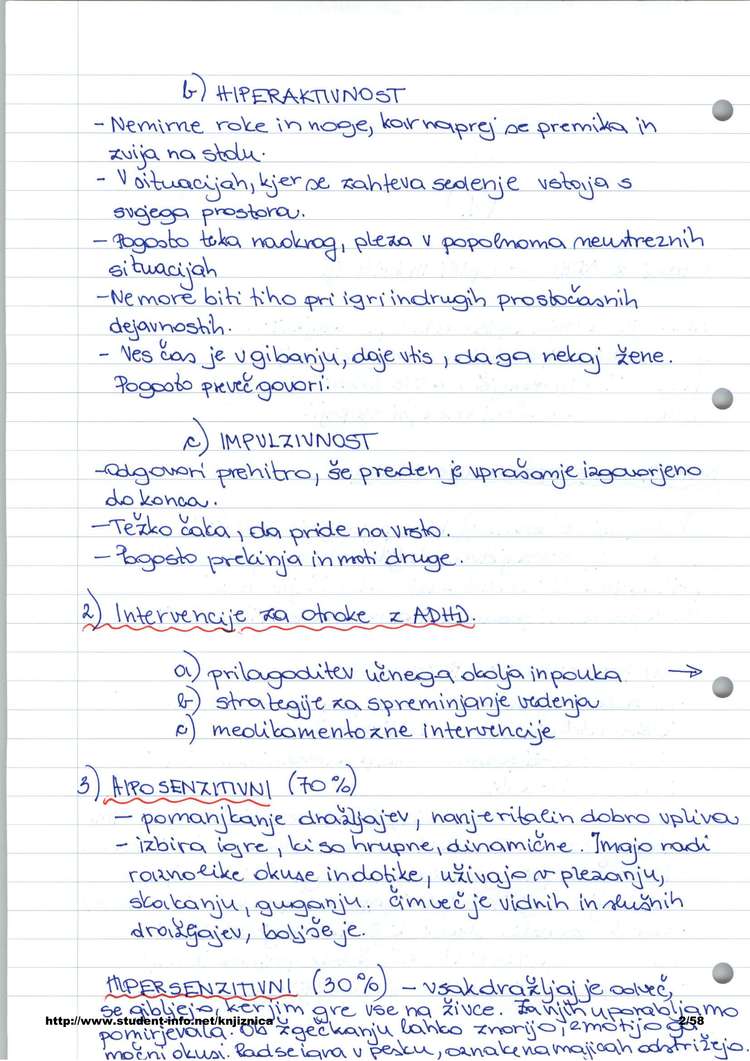 b) HIPERAKTIVNOST
- Nemirne roke in noge, kar naprej se premika in
zvija na stolu.
- V situacijah, kjer se zahteva sedenje vstaja s
svojega prostora.
- Pogosto teka naokrog, pleza v popolnoma neustreznih
situacijah
- Ne more biti tiho pri igri in drugih prostočasnih
dejavnostih.
- Ves čas je v gibanju, daje vtis, da ga nekaj žene.
Pogosto preveč govori.
c) IMPULZIVNOST
- Odgovori prehitro, še preden je vprašanje izgovorjeno
do konca.
- Težko čaka, da pride na vrsto.
- Pogosto prekinja in moti druge.
2) Intervencije za otroke z ADHD.
a) prilagoditev učnega okolja in pouka →
b) strategije za spreminjanje vedenja
c) medikamentozne intervencije
3) HIPOSENZITIVNI (70%)
- pomanjkanje dražljajev, nanje ritalin dobro vpliva
- izbira igre, ki so hrupne, dinamične. Imajo radi
raznolike okuse in dotike, uživajo v plezanju,
skakanju, guganju. Čim več je vidnih in slušnih
dražljajev, boljše je.
HIPERSENZITIVNI (30%) - vsak dražljaj je odveč,
se gibljejo ker jim gre vse na živce. Za njih uporabljamo
http://www.student-info.net/knjiznica 2/58
pomirjevala. Ob žgečkanju lahko znorijo, zmotijo g
močni okusi. Rad se igra v pesku, oznake na majicah odstrižejo.